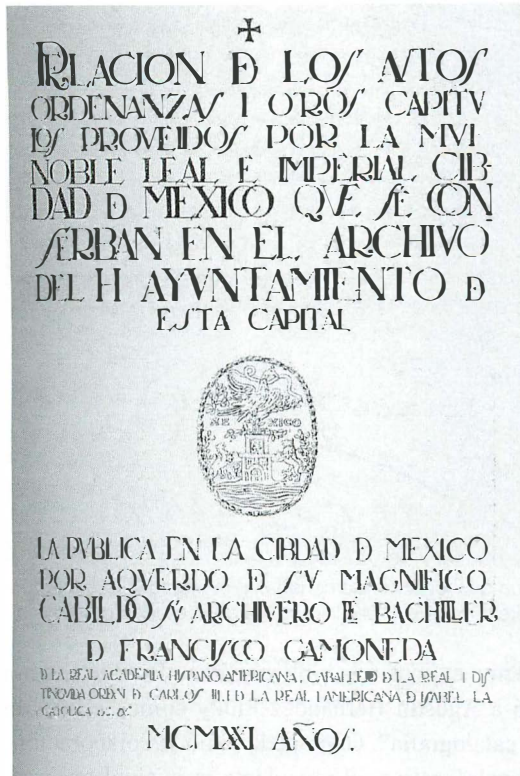 RELACION D LOS AVTOS
ORDENANZAS I OTROS CAPITV
LOS PROVEIDOS POR LA MVI
NOBLE LEAL E IMPERIAL CIB-
DAD D MEXICO QVE SE CON
SERBAN EN EL ARCHIVO
DEL H AYVNTAMIENTO D
ESTA CAPITAL
MEXICO
LA PVBLICA EN LA CIBDAD D MEXICO
POR AQVERDO D SV MAGNIFICO
CABILDO SV ARCHIVERO EL BACHILLER
D FRANCISCO GAMONEDA
D LA REAL ACADEMIA HISPANO AMERICANA, CABALLERO D LA REAL I DIS
TINGVIDA ORDEN D CARLOS III, I D LA REAL I AMERICANA D ISABEL LA
CATOLICA &. &.
MCMXXI AÑOS.